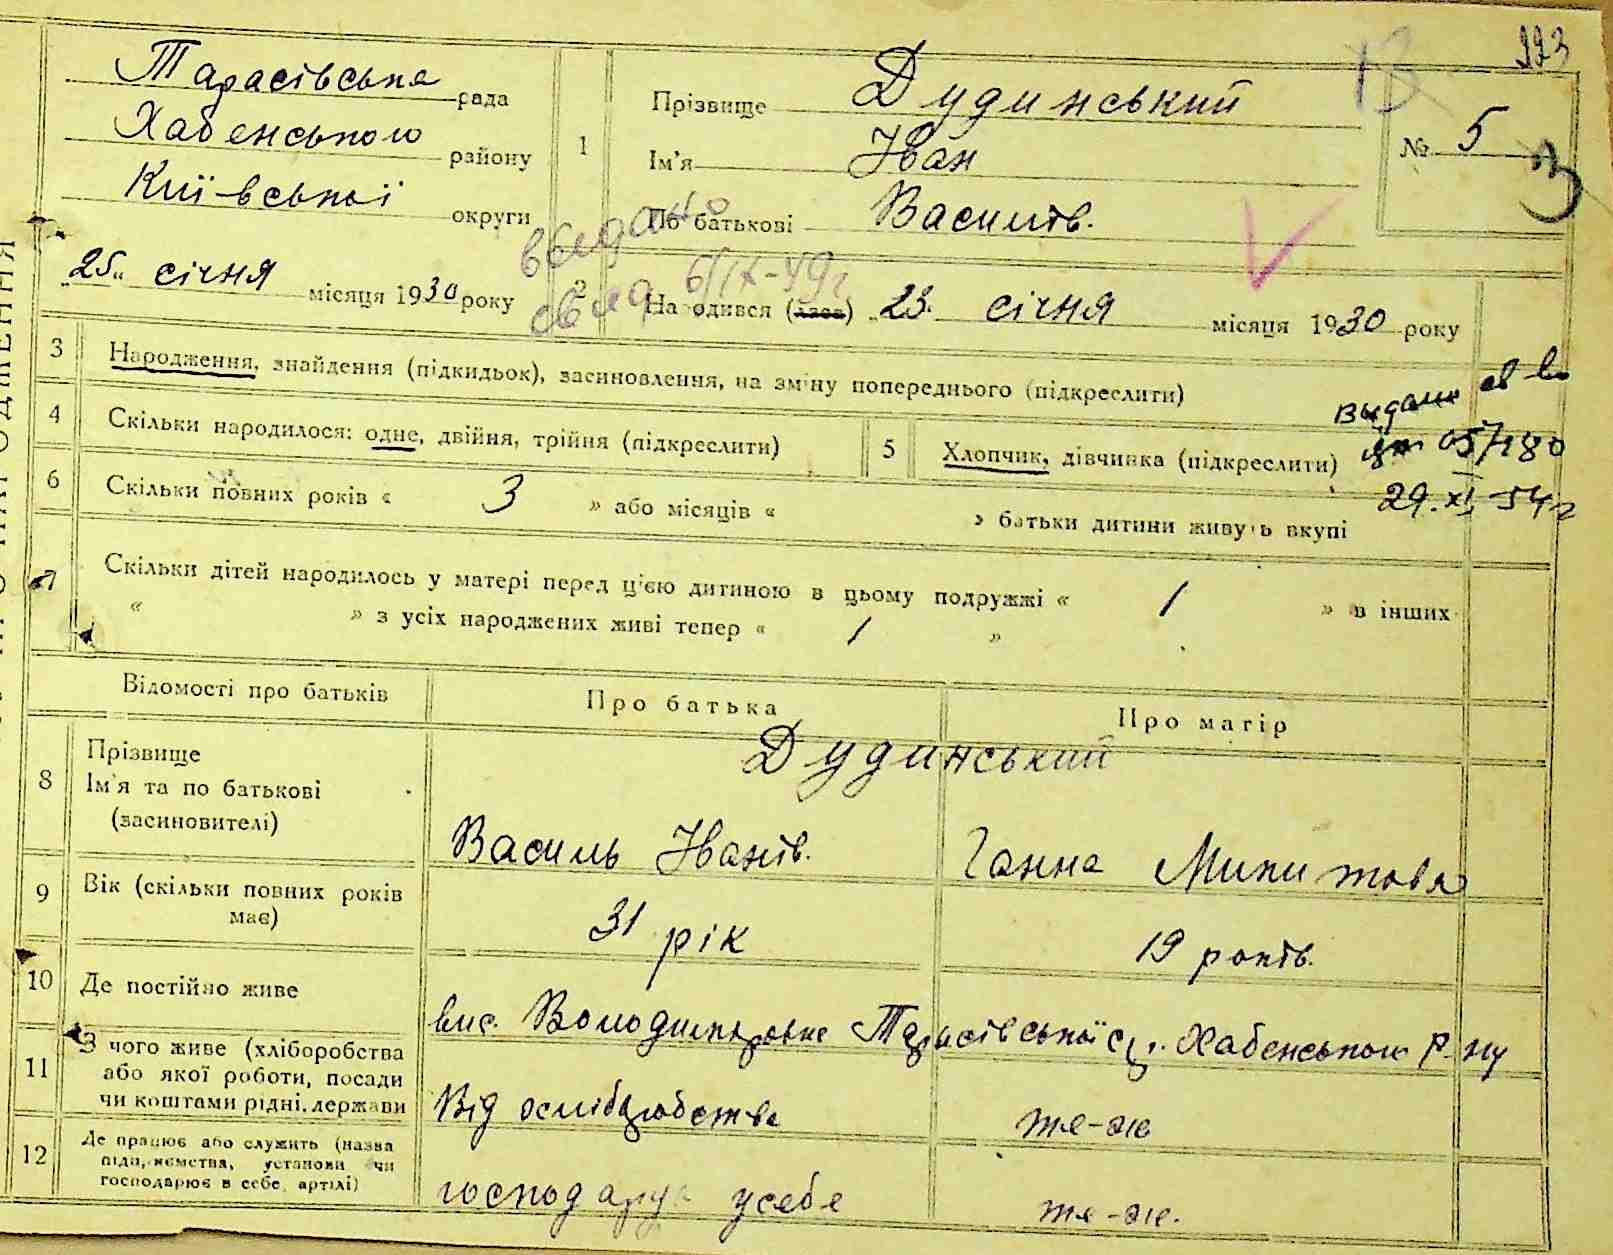 223
13
Тарасівська рада
Хабенського району
Київської округи
1
Прізвище Дудинський
Ім'я Іван
По батькові Василів.
№ 5
3
видано
6/IX-49г
25 січня місяця 1930 року
2
Народився 23. січня місяця 1930 року
3 Народження, знайдення (підкидьок), засиновлення, на зміну попереднього (підкреслити)
Выдано св во
05/180
29.XI 54 г
4 Скільки народилося: одне, двійня, трійня (підкреслити)
5 Хлопчик, дівчинка (підкреслити)
6 Скільки повних років « 3 » або місяців « » батьки дитини живуть вкупі
7 Скільки дітей народилось у матері перед цією дитиною в цьому подружжі « 1 » в інших
« » з усіх народжених живі тепер « 1 »
Відомості про батьків Про батька Про матір
8 Прізвище
Ім'я та по батькові
(засиновителі)
Дудинський
Василь Іванів. Ганна Микитова
9 Вік (скільки повних років має)
31 рік 19 років.
10 Де постійно живе
вис. Володимировке Тарасівської с/р. Хабенського р-ну
11 З чого живе (хліборобства
або якої роботи, посади
чи коштами рідні, держави
Від хліборобства те-же
12 Де працює або служить (назва
підприємства, установи чи
господарює в себе, артілі)
господарує усебе те-же.